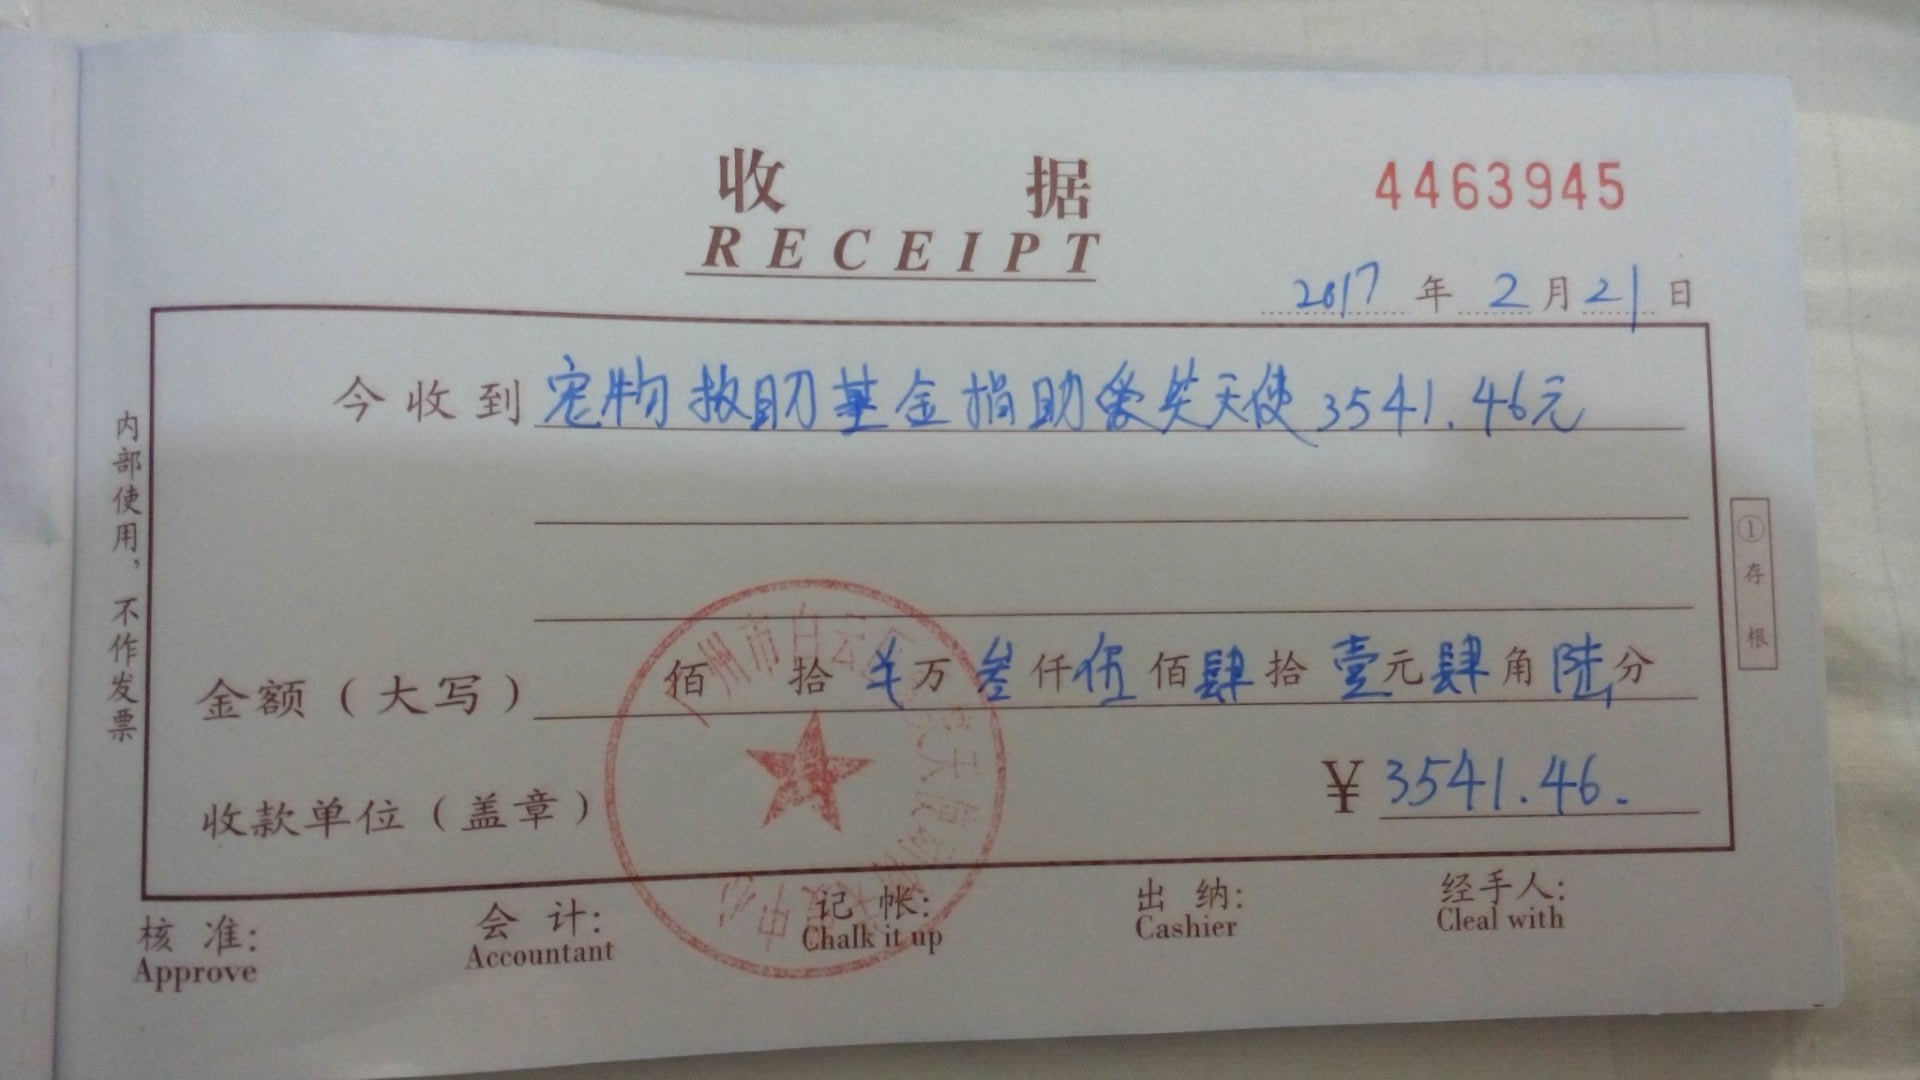 收 据
RECEIPT
4463945
2017 年 2 月 21 日
今收到 宠物救助基金捐助爱笑天使3541.46元
内部使用，不作发票
① 存根
金额（大写） 佰 拾 万 叁仟伍佰肆拾壹元肆角陆分
收款单位（盖章） ¥ 3541.46.
核 准: 会 计: 记 帐: 出 纳: 经手人:
Approve Accountant Chalk it up Cashier Cleal with
广州市白云 天使 中心